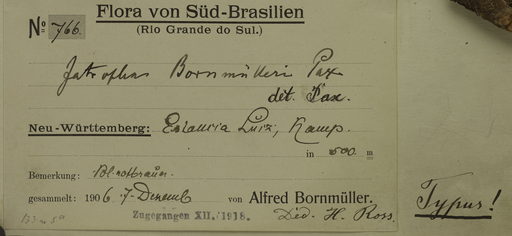 Flora von Süd-Brasilien
No 766.
(Rio Grande do Sul.)
Jatropha Bornmülleri Pax
det. Pax.
Neu-Württemberg: Estancia Luiz, Kamp.
in 500 m
Bemerkung: Bl. rotbraun.
gesammelt: 1906 7-Dezemb von Alfred Bornmüller.
Zugegangen XII./1918. Ded. H. Ross.
Typus!